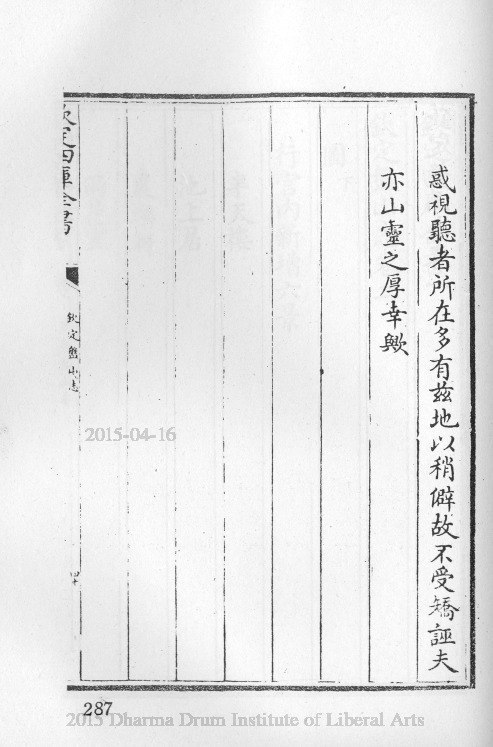 惑視聽者所在多有兹地以稍僻故不受矯誣夫
亦山靈之厚幸歟
欽定四庫全書
欽定盤山志
四十
2015-04-16
287
2015 Dharma Drum Institute of Liberal Arts